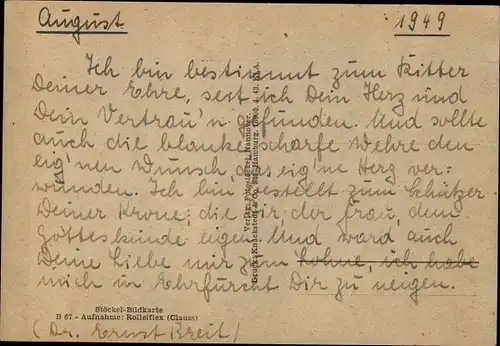 August 1949
Ich bin bestimmt zum Ritter
Deiner Ehre, seit ich Dein Herz und
Dein Vertrau'n gefunden. Und sollte
auch die blanke scharfe Wehre den
eig'nen Wunsch, das eig'ne Herz ver-
wunden. Ich bin bestellt zum Schützer
Deiner Krone; die wir der Frau, dem
Gotteskinde eigen. Und ward auch
Deine Liebe mir zum Lohne, ich habe
mich in Ehrfurcht Dir zu neigen.
Stöckel-Bildkarte
B 67 - Aufnahme: Rolleiflex (Clauss)
(Dr. Ernst Breit)
Verlag: Hannover.
Druck: Knackstedt & Co. Hamburg